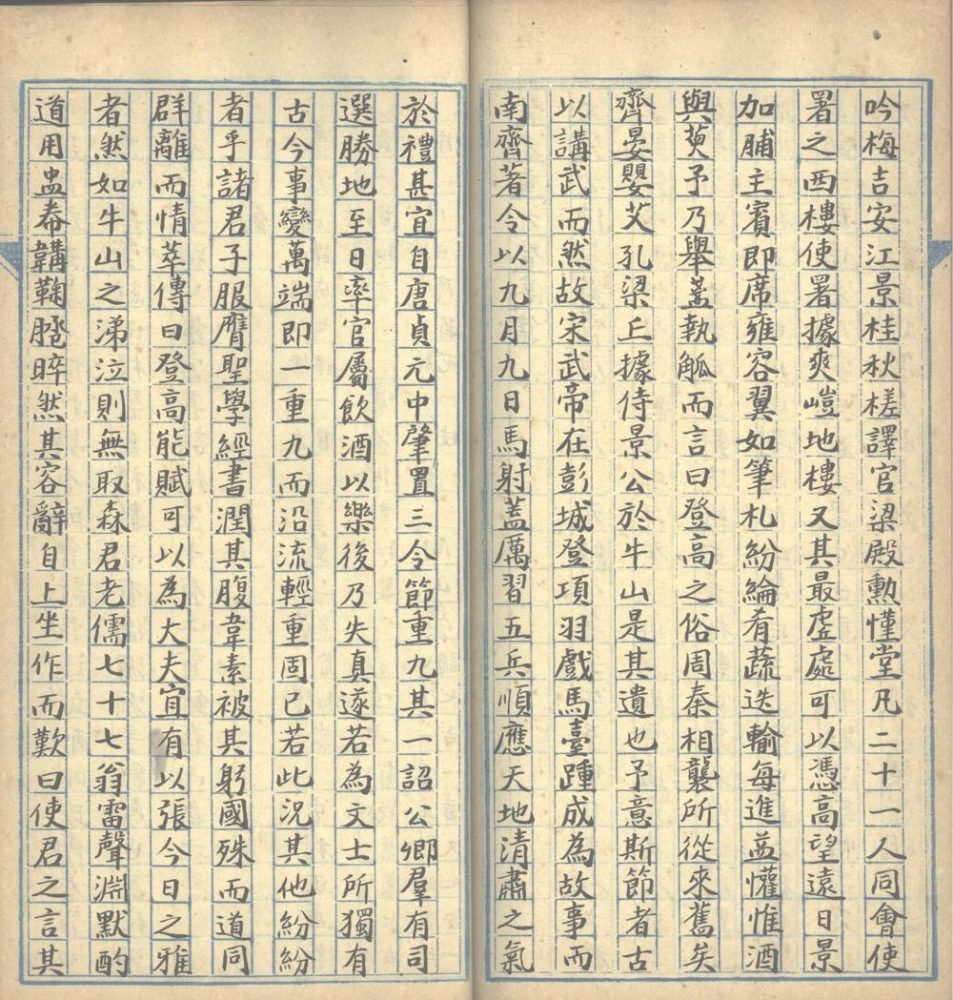 吟梅吉安江景桂秋槎譯官梁殿勳懂堂凡二十一人同會使
署之西樓使署據爽嵦地樓又其最虛處可以憑高望遠日景
加脯主賓即席雍容翼如筆札紛綸肴蔬迭輸每進益懽惟酒
與萸予乃舉蓋執觚而言曰登高之俗周秦相襲所從來舊矣
齊晏嬰艾孔梁丘據侍景公於牛山是其遺也予意斯節者古
以講武而然故宋武帝在彭城登項羽戲馬臺踵成為故事而
南齊著令以九月九日馬射蓋厲習五兵順應天地清肅之氣
於禮甚宜自唐貞元中肇置三令節重九其一詔公卿羣有司
選勝地至日率官屬飲酒以樂後乃失真遂若為文士所獨有
古今事變萬端即一重九而沿流輕重固已若此況其他紛紛
者乎諸君子服膺聖學經書潤其腹韋素被其躬國殊而道同
群離而情萃傳曰登高能賦可以為大夫宜有以張今日之雅
者然如牛山之涕泣則無取森君老儒七十七翁雷聲淵默酌
道用盅帣韝鞠晬然其容辭自上坐作而歎曰使君之言其